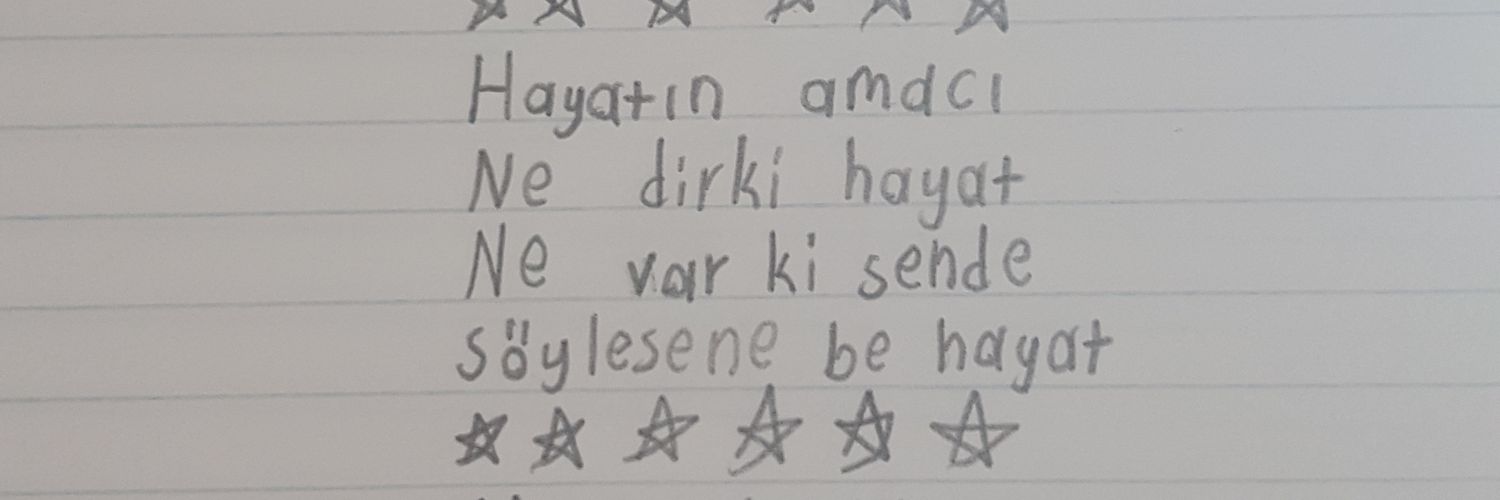 Hayatın amacı
Ne dirki hayat
Ne var ki sende
söylesene be hayat